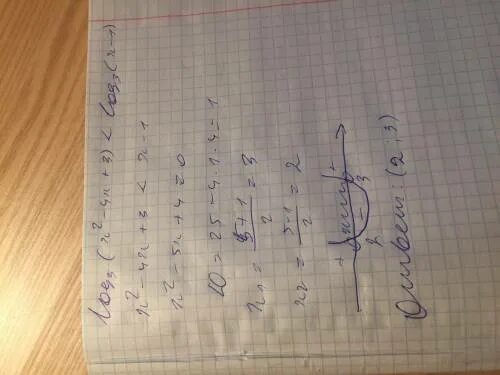 log₃(x² - 4x + 3) < log₃(x - 1)
x² - 4x + 3 < x - 1
x² - 5x + 4 = 0
D = 25 - 4 · 1 · 4 = 1
x₁ = (5 + 1)/2 = 3
x₂ = (5 - 1)/2 = 2
+ - +
2 3
Ответ: (2 ; 3)